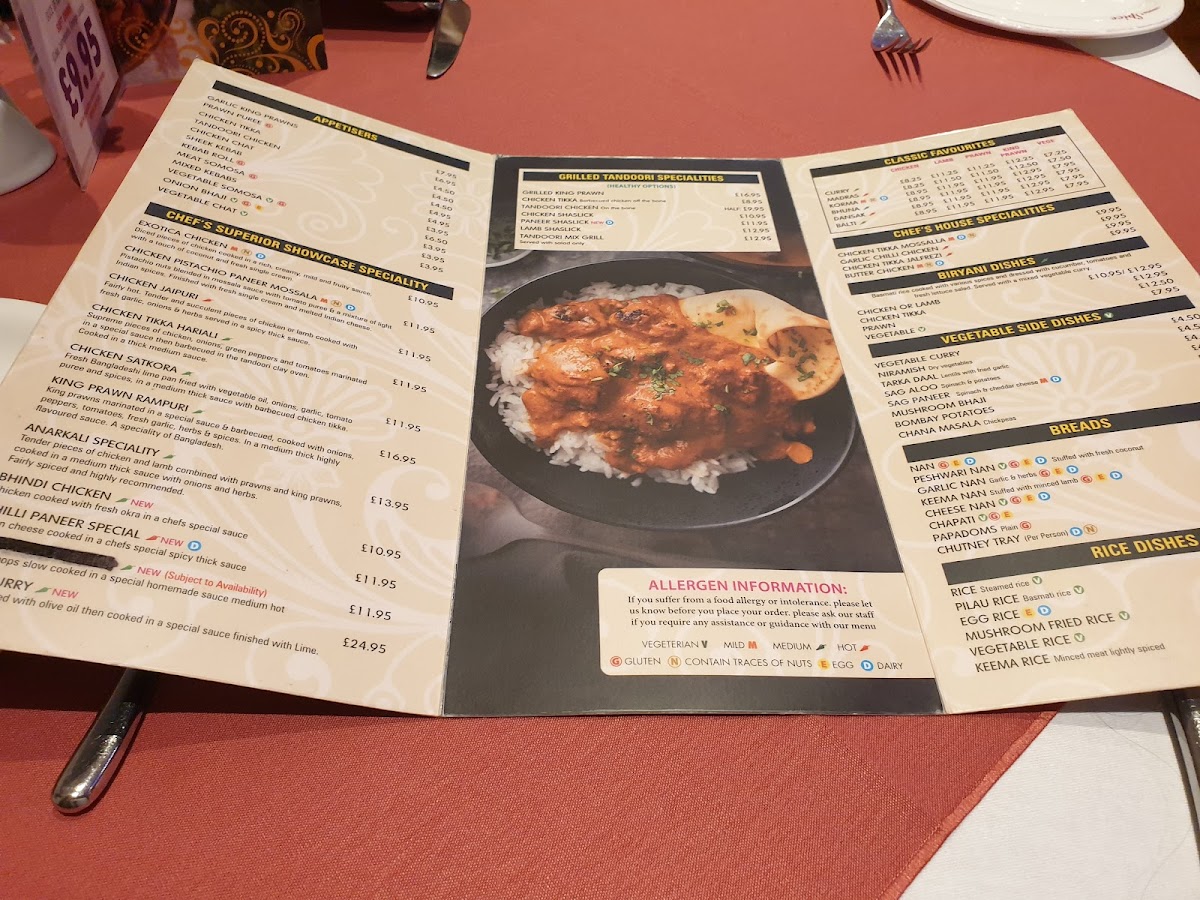 £9.95
Spice
APPETISERS
GARLIC KING PRAWNS £7.95
PRAWN PUREE G £6.95
CHICKEN TIKKA £4.50
TANDOORI CHICKEN £4.50
CHICKEN CHAT £4.50
SHEEK KEBAB £4.95
KEBAB ROLL G £4.95
MEAT SOMOSA G £3.95
MIXED KEBABS £6.50
VEGETABLE SOMOSA V G £3.95
ONION BHAJI V G E £3.95
VEGETABLE CHAT V £3.95
CHEF'S SUPERIOR SHOWCASE SPECIALITY
EXOTICA CHICKEN M N D £10.95
Diced pieces of chicken cooked in a rich, creamy, mild and fruity sauce,
with a touch of coconut and fresh single cream
CHICKEN PISTACHIO PANEER MOSSALA M N D £11.95
Pistachio nuts blended in mossala sauce with tomato puree & a mixture of light
Indian spices. Finished with fresh single cream and melted Indian cheese.
CHICKEN JAIPURI £11.95
Fairly hot. Tender and succulent pieces of chicken or lamb cooked with
fresh garlic, onions & herbs served in a spicy thick sauce.
CHICKEN TIKKA HARIALI £11.95
Supreme pieces of chicken, onions, green peppers and tomatoes marinated
in a special sauce then barbecued in the tandoori clay oven.
Cooked in a thick medium sauce.
CHICKEN SATKORA £11.95
Fresh Bangladeshi lime pan fried with vegetable oil, onions, garlic, tomato
puree and spices, in a medium thick sauce with barbecued chicken tikka.
KING PRAWN RAMPURI £16.95
King prawns marinated in a special sauce & barbecued, cooked with onions,
peppers, tomatoes, fresh garlic, herbs & spices. In a medium thick highly
flavoured sauce. A speciality of Bangladesh.
ANARKALI SPECIALITY £13.95
Tender pieces of chicken and lamb combined with prawns and king prawns,
cooked in a medium thick sauce with onions and herbs.
Fairly spiced and highly recommended.
BHINDI CHICKEN NEW £10.95
chicken cooked with fresh okra in a chefs special sauce
HILLI PANEER SPECIAL NEW D £11.95
n cheese cooked in a chefs special spicy thick sauce
NEW (Subject to Availability) £11.95
ops slow cooked in a special homemade sauce medium hot
URRY NEW £24.95
ed with olive oil then cooked in a special sauce finished with Lime.
GRILLED TANDOORI SPECIALITIES
(HEALTHY OPTIONS)
GRILLED KING PRAWN £16.95
CHICKEN TIKKA Barbecued chicken off the bone £8.95
TANDOORI CHICKEN On the bone HALF £9.95
CHICKEN SHASLICK £10.95
PANEER SHASLICK NEW D £11.95
LAMB SHASLICK £12.95
TANDOORI MIX GRILL £12.95
Served with salad only
ALLERGEN INFORMATION:
If you suffer from a food allergy or intolerance, please let
us know before you place your order, please ask our staff
if you require any assistance or guidance with our menu
VEGETERIAN V MILD M MEDIUM HOT
G GLUTEN N CONTAIN TRACES OF NUTS E EGG D DAIRY
CLASSIC FAVOURITES
CHICKEN LAMB PRAWN KING PRAWN VEGE
CURRY £8.25 £11.25 £11.25 £12.25 £7.25
MADRAS £8.25 £11.50 £11.50 £12.50 £7.50
KORMA M N D £8.95 £11.95 £11.95 £12.95 £7.95
BHUNA £8.95 £11.95 £11.95 £12.95 £7.95
DANSAK £8.95 £11.95 £11.95 £12.95 £7.95
BALTI £8.95 £11.95 £11.95 £12.95 £7.95
CHEF'S HOUSE SPECIALITIES
CHICKEN TIKKA MOSSALLA M D N £9.95
GARLIC CHILLI CHICKEN £9.95
CHICKEN TIKKA JALFREZI £9.95
BUTTER CHICKEN M N D £9.95
BIRYANI DISHES
Basmati rice cooked with various spices and dressed with cucumber, tomatoes and
fresh lettuce salad. Served with a mixed vegetable curry.
CHICKEN OR LAMB £10.95/ £12.95
CHICKEN TIKKA £12.95
PRAWN £12.50
VEGETABLE V £7.95
VEGETABLE SIDE DISHES V
VEGETABLE CURRY £4.50
NIRAMISH Dry vegetables
TARKA DAAL Lentils with fried garlic
SAG ALOO Spinach & potatoes
SAG PANEER Spinach & cheddar cheese M D
MUSHROOM BHAJI
BOMBAY POTATOES
CHANA MASALA Chickpeas
BREADS
NAN G E D
PESHWARI NAN V G E D Stuffed with fresh coconut
GARLIC NAN Garlic & herbs G E D
KEEMA NAN Stuffed with minced lamb G E D
CHEESE NAN V G E D
CHAPATI V G E
PAPADOMS Plain G
CHUTNEY TRAY (Per Person) D N
RICE DISHES
RICE Steamed rice V
PILAU RICE Basmati rice V
EGG RICE E D
MUSHROOM FRIED RICE V
VEGETABLE RICE V
KEEMA RICE Minced meat lightly spiced